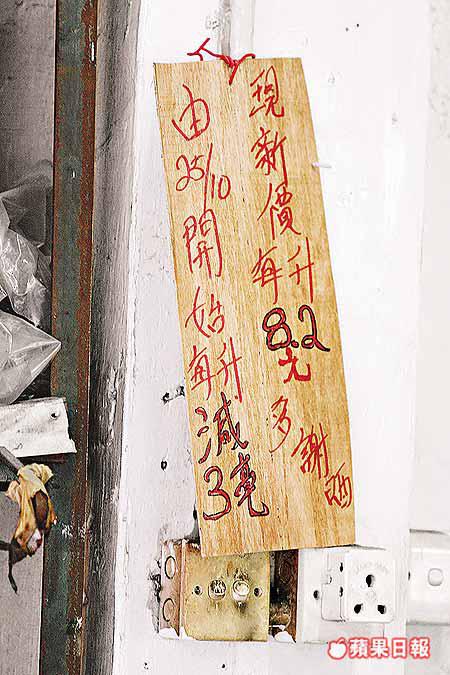 由25/10開始每升減3毫
現新價每升8.2元多謝哂
蘋果日報